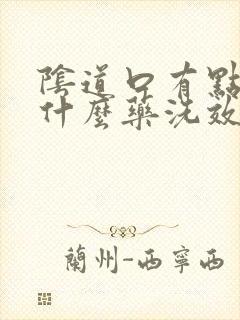 陰道口有點
什麼藥洗效
蘭州-西寧西